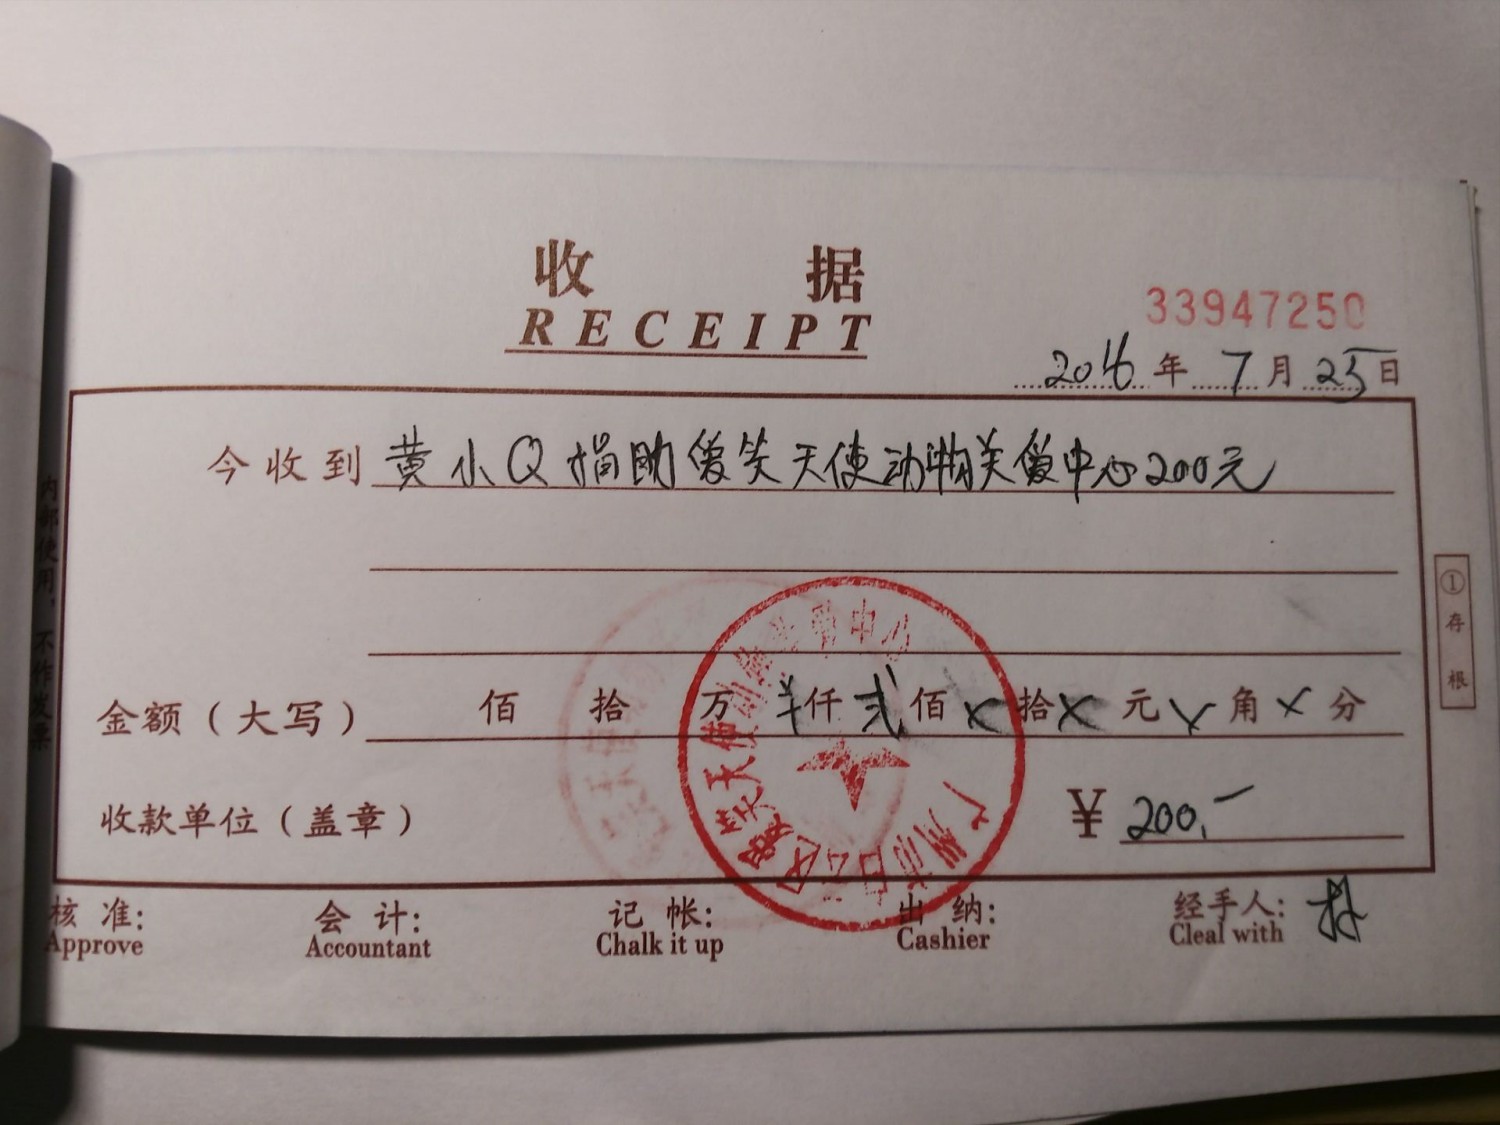 收 据
RECEIPT
33947250
2016 年 7 月 25 日
今收到 黄小Q捐助爱笑天使动物关爱中心200元
金额（大写） 佰 拾 万 ¥仟 贰佰 ×拾 ×元 ×角 ×分
收款单位（盖章） ¥ 200.-
核 准: 会 计: 记 帐: 出 纳: 经手人:
Approve Accountant Chalk it up Cashier Cleal with
① 存根
内部使用，不作发票
广州市白云区爱笑天使动物关爱中心